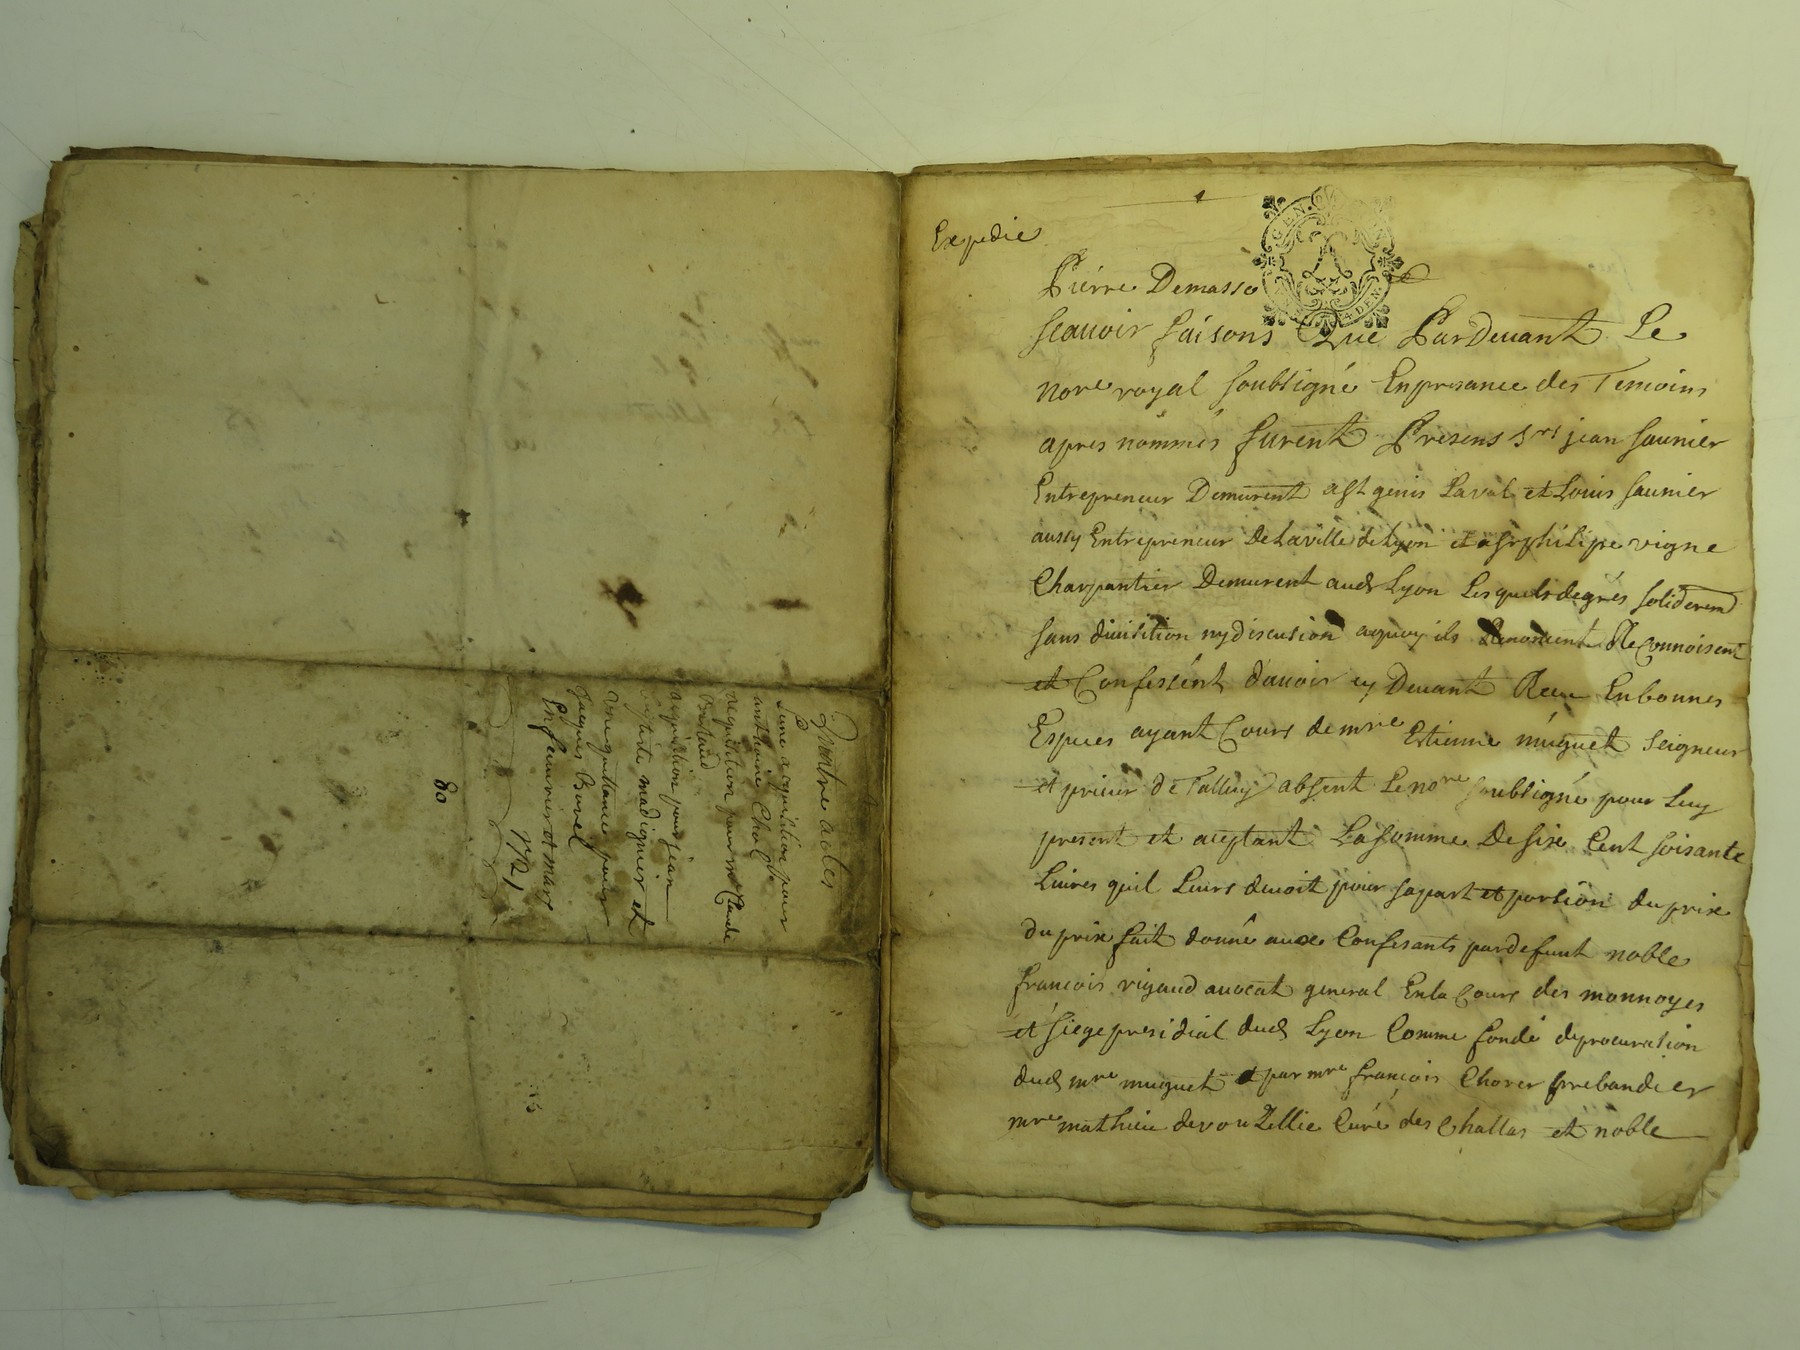 quatre actes
Lune acquisition pour
anthoine Chol
Requisition pour mre Claude
Bertaud
acquisition pour jean
batiste madignier et
une quittance pour
Jacques Burel
En feuvrier et mars
1721
80
Expedie
Pierre Demasso
scauoir faisons Que ParDeuant Le
nore royal soubsigné Enpresance des Temoins
apres nommés furent Presens srs jean saunier
Entrepreneur Demurent a St genis Laval et Louis saunier
aussy Entrepreneur De Laville de Lyon et sr philipe vigne
Charpantier Demurent aud Lyon Lesquels degrés soliderem
sans diuisition ny discusion aquoy ils Renoncent Reconnoisent
et Confessent dauoir cy Deuant Receu Enbonnes
Espues ayant Cours de mre Estienne muguet seigneur
et prieur de Talluy absent Le nore soubsigné pour Luy
present et aceptant La somme De six Cent soisante
Liures quil Leurs deuoit pour sapart et portion du prix
du prix fait donné aux Confesants par defunt noble
francois rigaud auocat general En la Cours des monnoyes
et siege presidial dud Lyon Comme fondé deprocuration
dud mre muguet et par mre francois Chorer prebandier
mre mathieu devouZellie Curé des Challas et noble